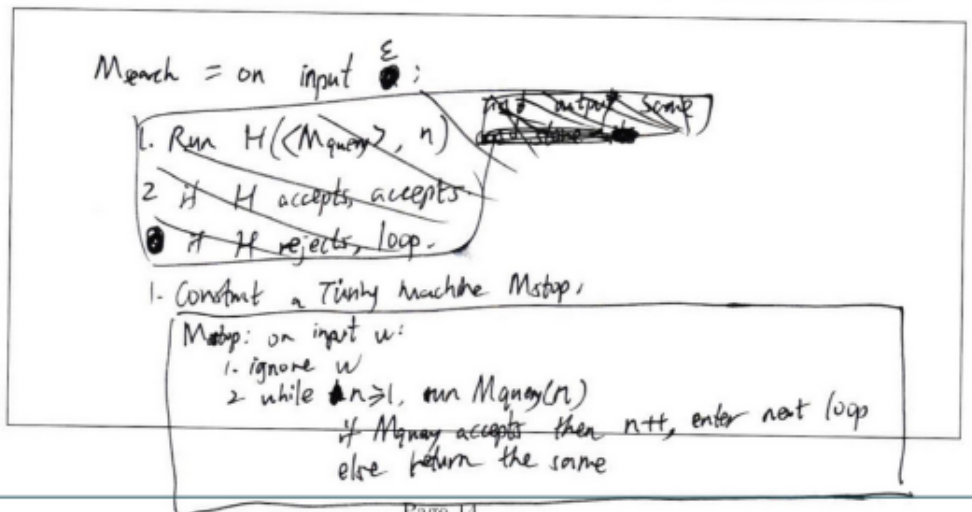 Msearch = on input ε:
not output same
1. Run H(<Mquery>, n)
2 if H accepts, accepts.
if H rejects, loop.
1. Constrnt a Turing machine Mstop,
Mstop: on input w:
1. ignore w
2 while n≥1, run Mquery(n)
if Mquery accepts then n++, enter next loop
else return the same
Page 14